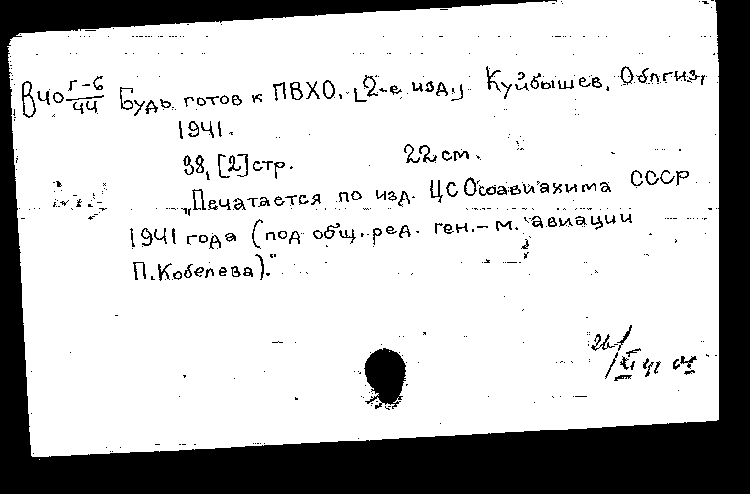 В40 Г-6/44 Будь готов к ПВХО. [2-е изд.] Куйбышев, Облгиз,
1941.
98, [2] стр. 22 см.
„Печатается по изд. ЦС Осоавиахима СССР
1941 года (под общ. ред. ген.-м. авиации
П. Кобелева)."
26/XI 41